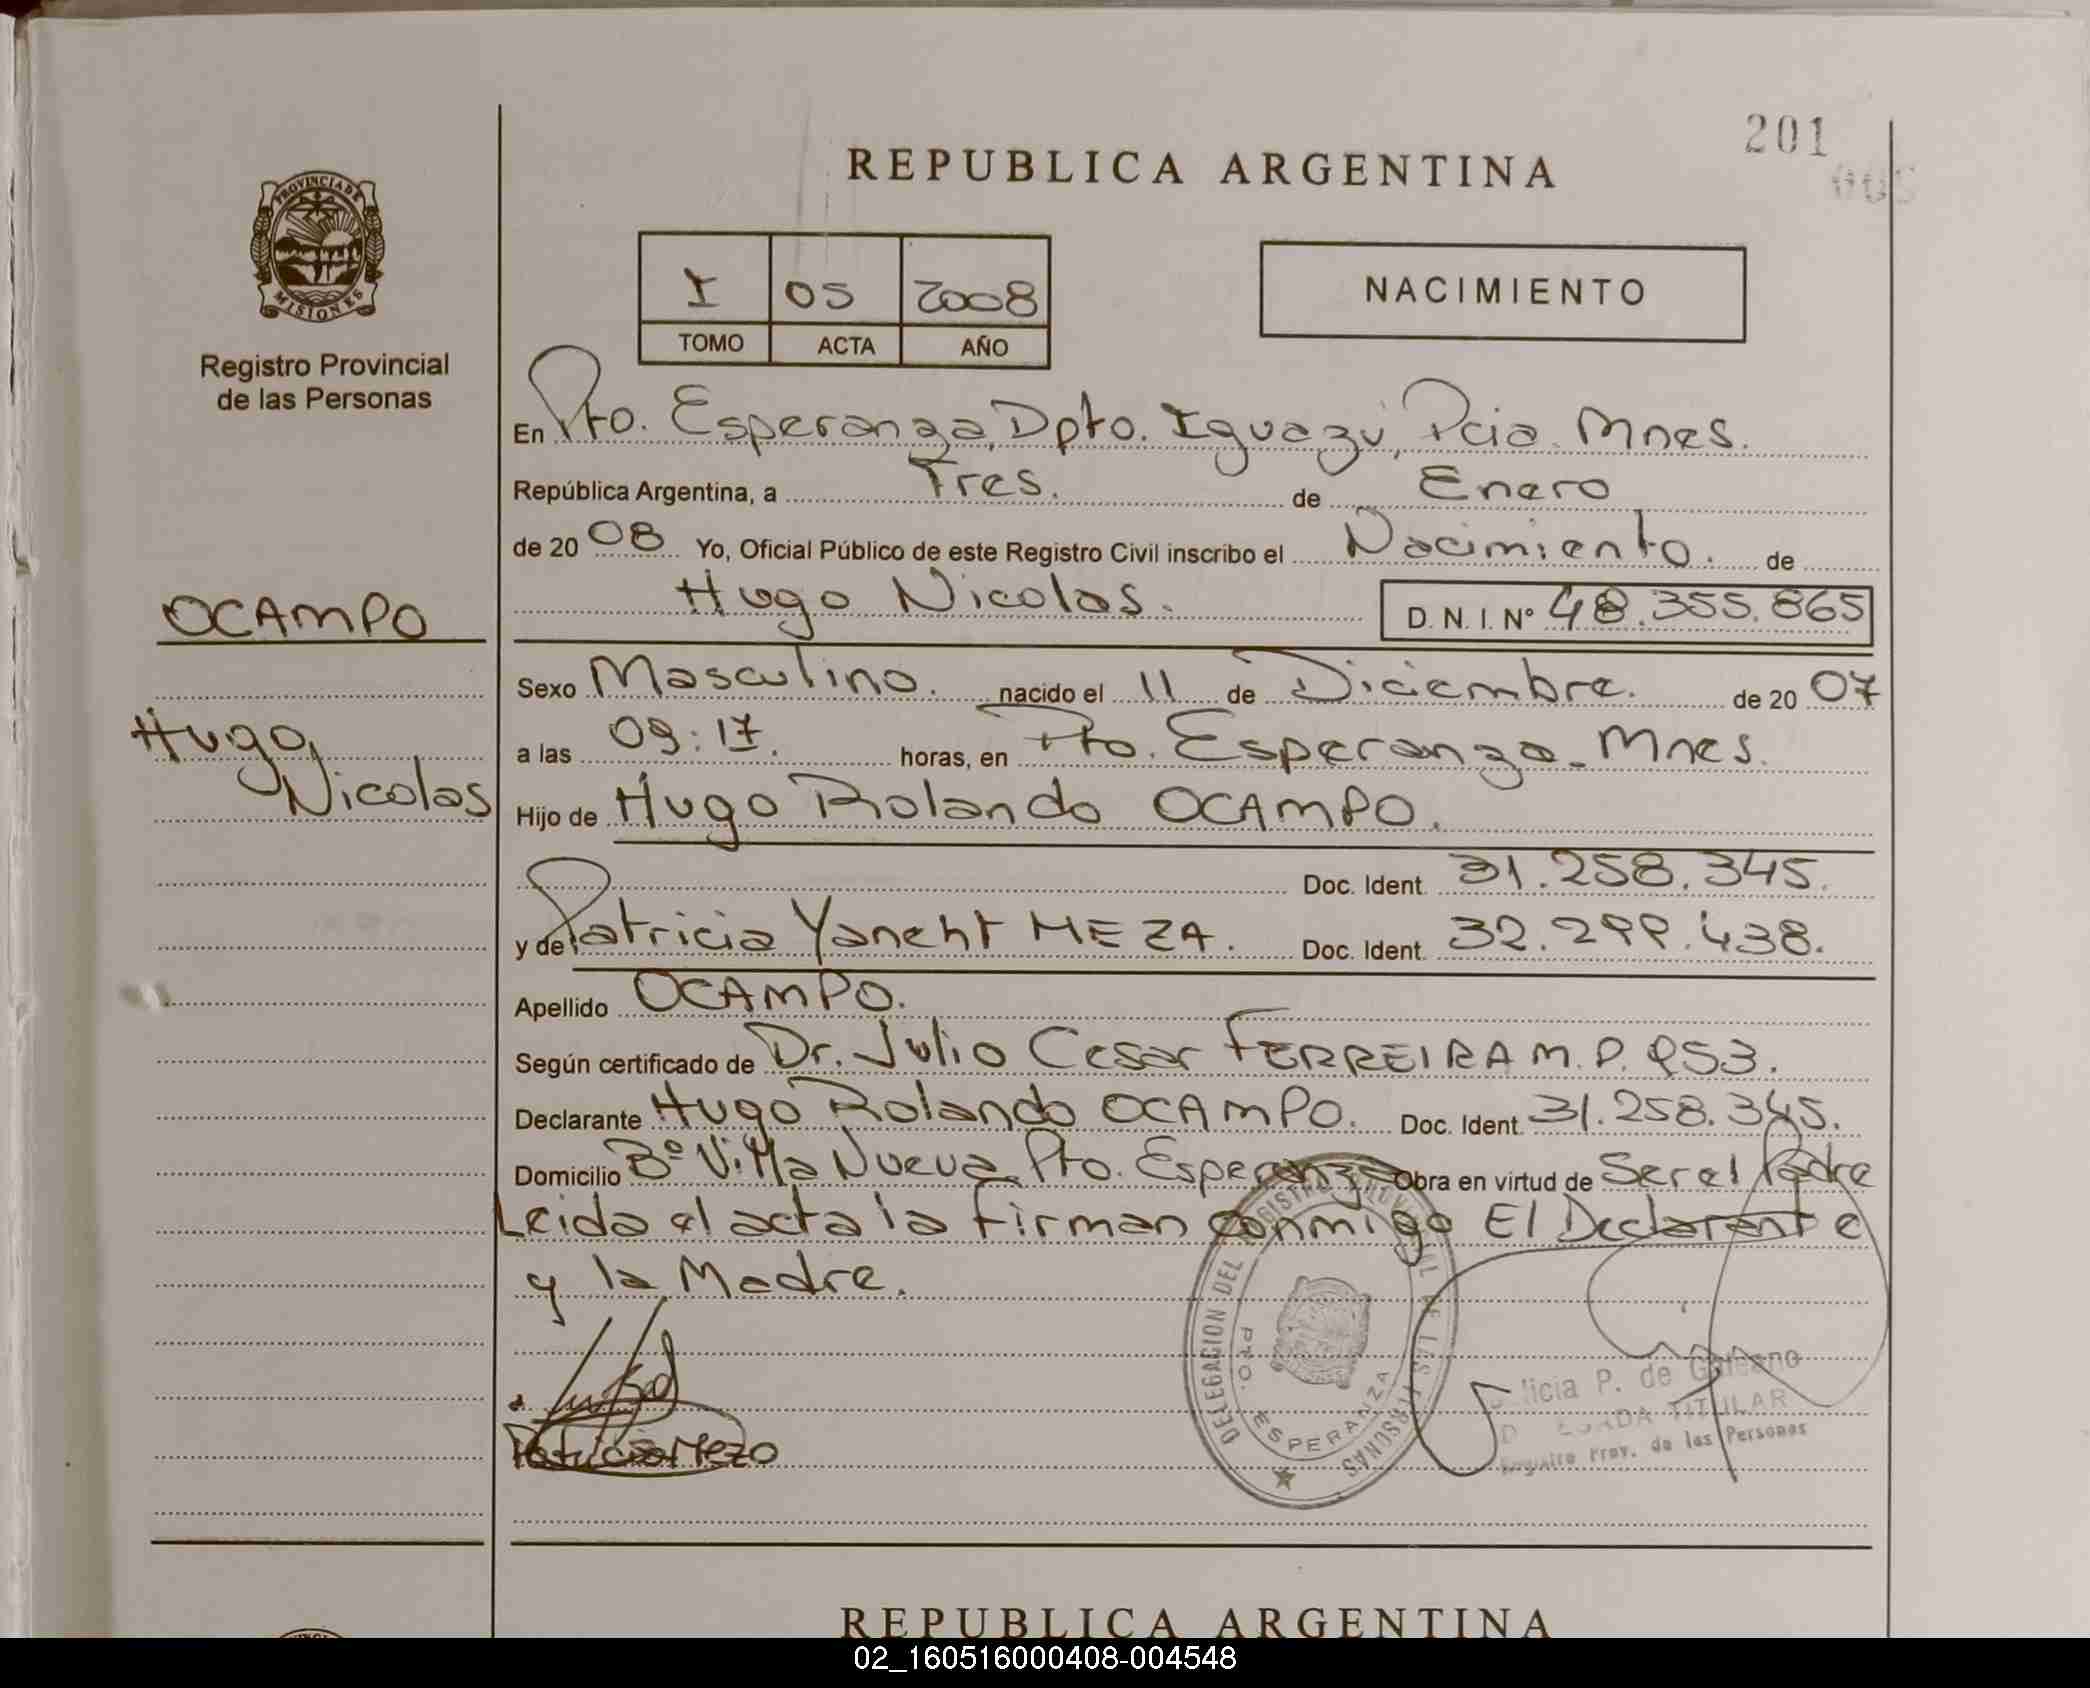 201
005
REPUBLICA ARGENTINA
PROVINCIA DE
MISIONES
Registro Provincial
de las Personas
I 05 2008
TOMO ACTA AÑO
NACIMIENTO
En Pto. Esperanza, Dpto. Iguazú, Pcia. Mnes.
República Argentina, a Tres. de Enero
de 20 08 Yo, Oficial Público de este Registro Civil inscribo el Nacimiento. de
Hugo Nicolas. D. N. I. Nº 48.355.865
OCAMPO
Hugo
Nicolas
Sexo Masculino. nacido el 11 de Diciembre. de 20 07
a las 09:17. horas, en Pto. Esperanza - Mnes.
Hijo de Hugo Rolando OCAMPO.
Doc. Ident. 31.258.345.
y de Patricia Yaneht MEZA. Doc. Ident. 32.299.438.
Apellido OCAMPO.
Según certificado de Dr. Julio Cesar FERREIRA M.P. 953.
Declarante Hugo Rolando OCAMPO. Doc. Ident. 31.258.345.
Domicilio Bº Villa Nueva, Pto. Esperanza Obra en virtud de Ser el Padre
Leida el acta la firman conmigo El Declarante
y la Madre.
Patricia Mezo
DELEGACION DEL REGISTRO
PERSONAS
PTO. ESPERANZA
P. de Galeano
TITULAR
Registro Prov. de las Personas
REPUBLICA ARGENTINA
02_160516000408-004548